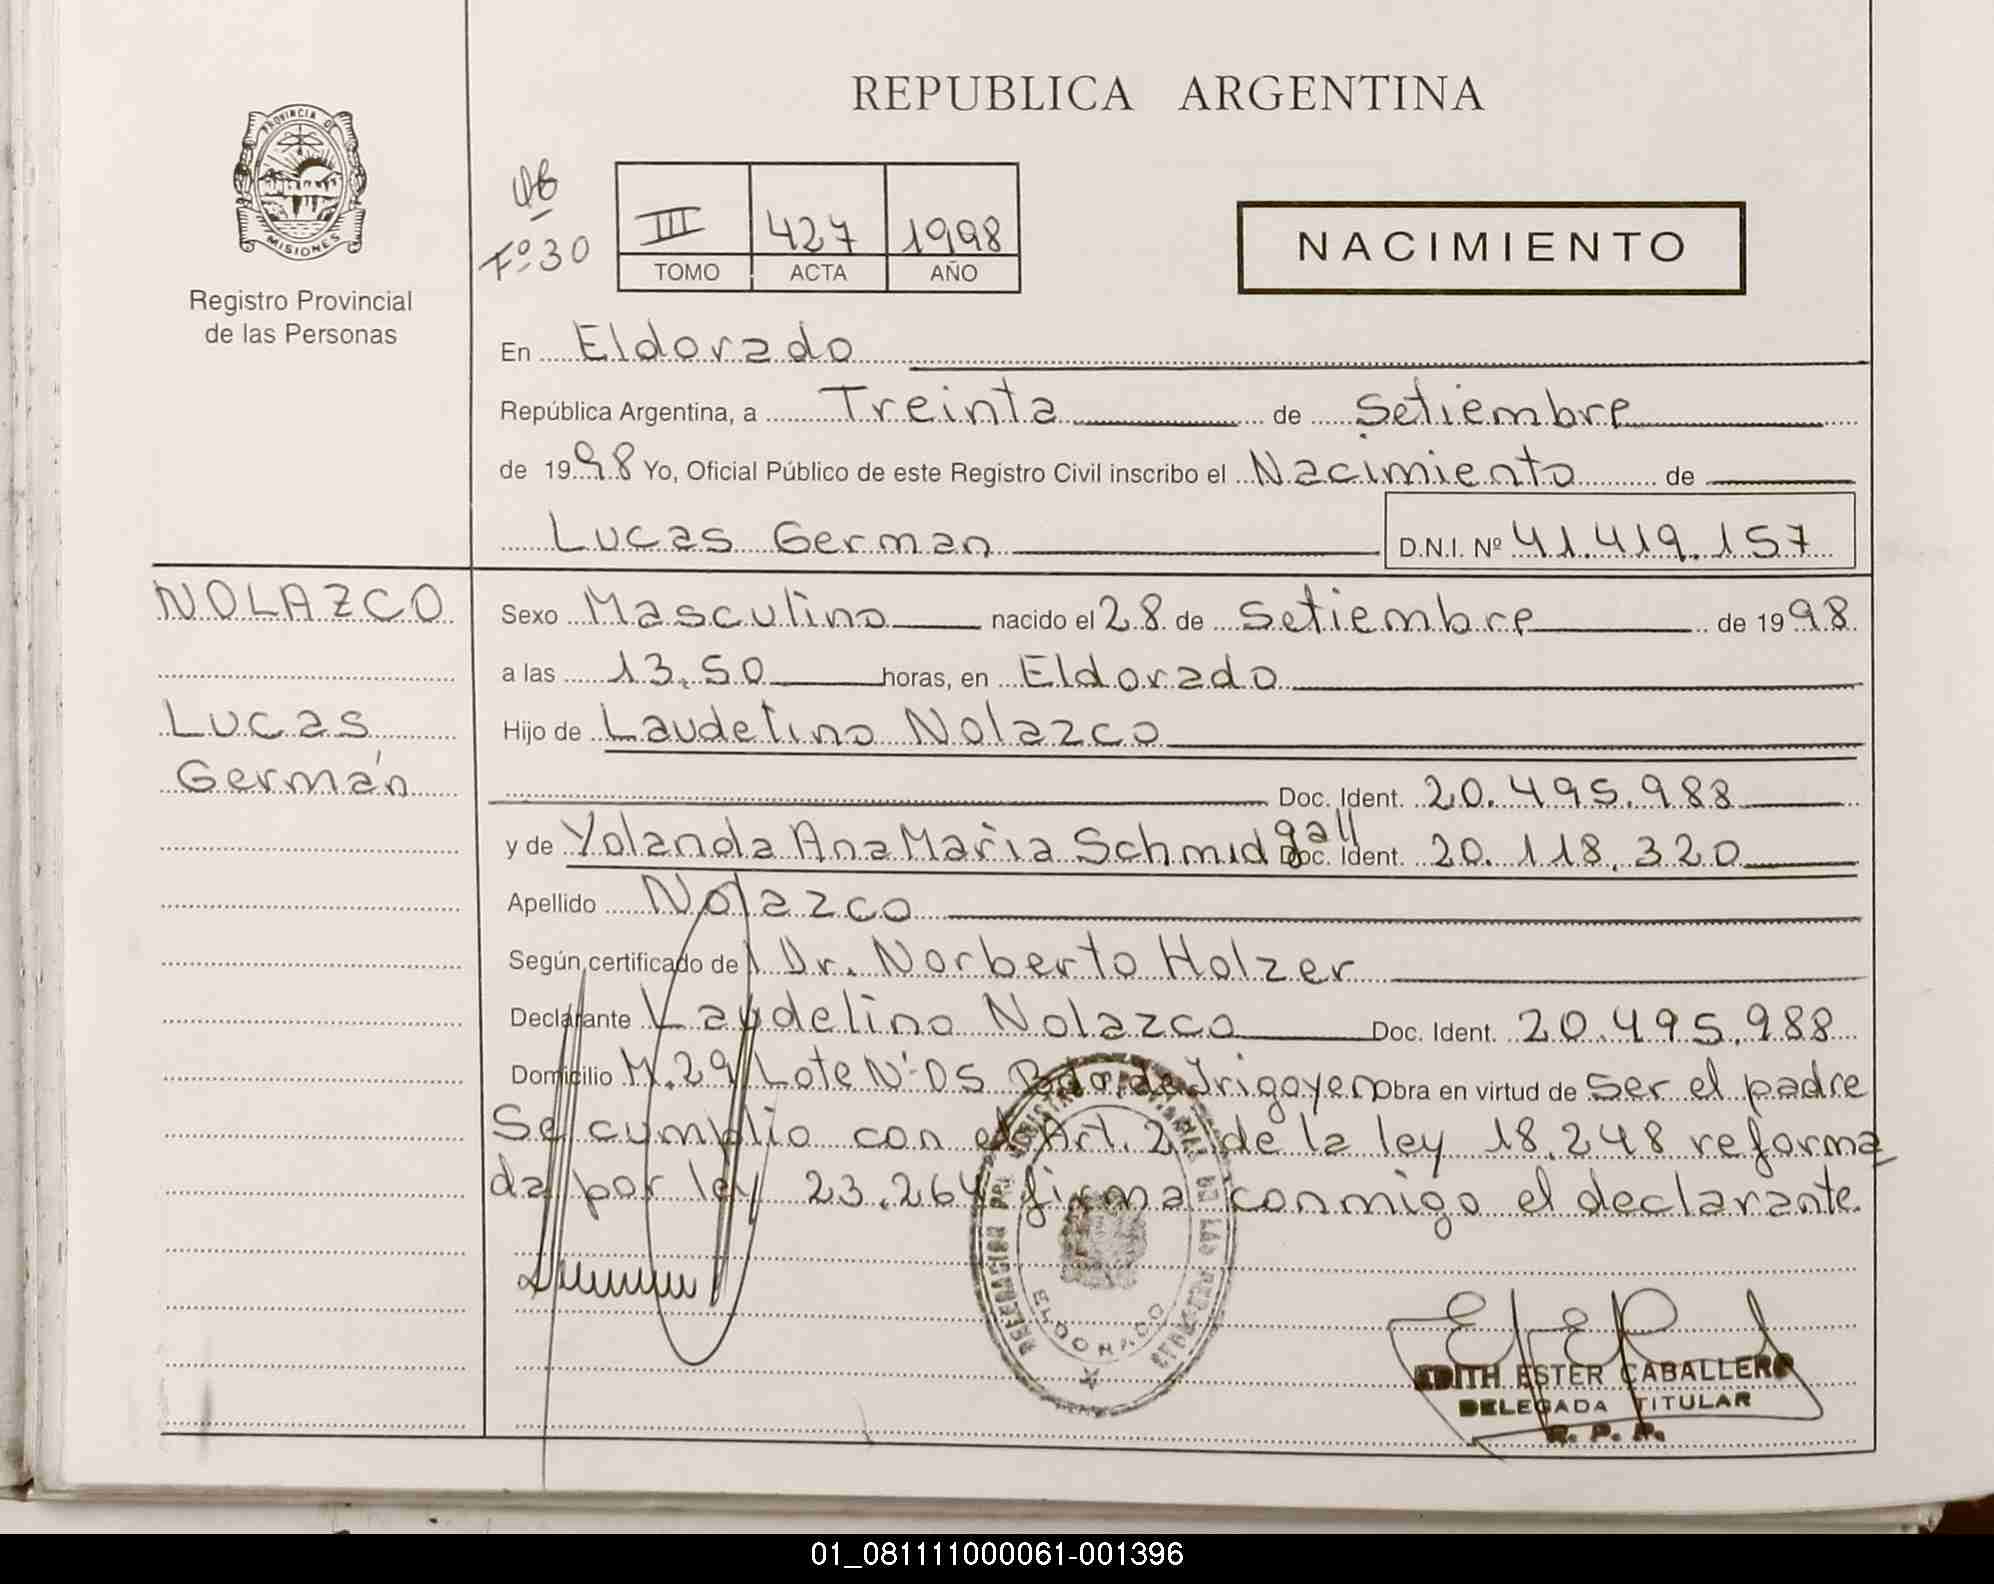 REPUBLICA ARGENTINA
PROVINCIA DE
MISIONES
Registro Provincial
de las Personas
Fº 30
III 427 1998
TOMO ACTA AÑO
NACIMIENTO
En Eldorado
República Argentina, a Treinta de Setiembre
de 1998 Yo, Oficial Público de este Registro Civil inscribo el Nacimiento de
Lucas German D.N.I. Nº 41.419.157
NOLAZCO
Lucas
Germán
Sexo Masculino nacido el 28 de Setiembre de 1998
a las 13.50 horas, en Eldorado
Hijo de Laudelino Nolazco
Doc. Ident. 20.495.988
y de Yolanda Ana Maria Schmidgall Doc. Ident. 20.118.320
Apellido Nolazco
Según certificado del Dr. Norberto Holzer
Declarante Laudelino Nolazco Doc. Ident. 20.495.988
Domicilio M.29 Lote Nº 05 Bdo. de Irigoyen Obra en virtud de ser el padre
Se cumplio con el Art. 2 de la ley 18.248 reforma
da por ley 23.264 firma conmigo el declarante.
ELDORADO
EDITH ESTER CABALLERO
DELEGADA TITULAR
R. P. P.
01_081111000061-001396